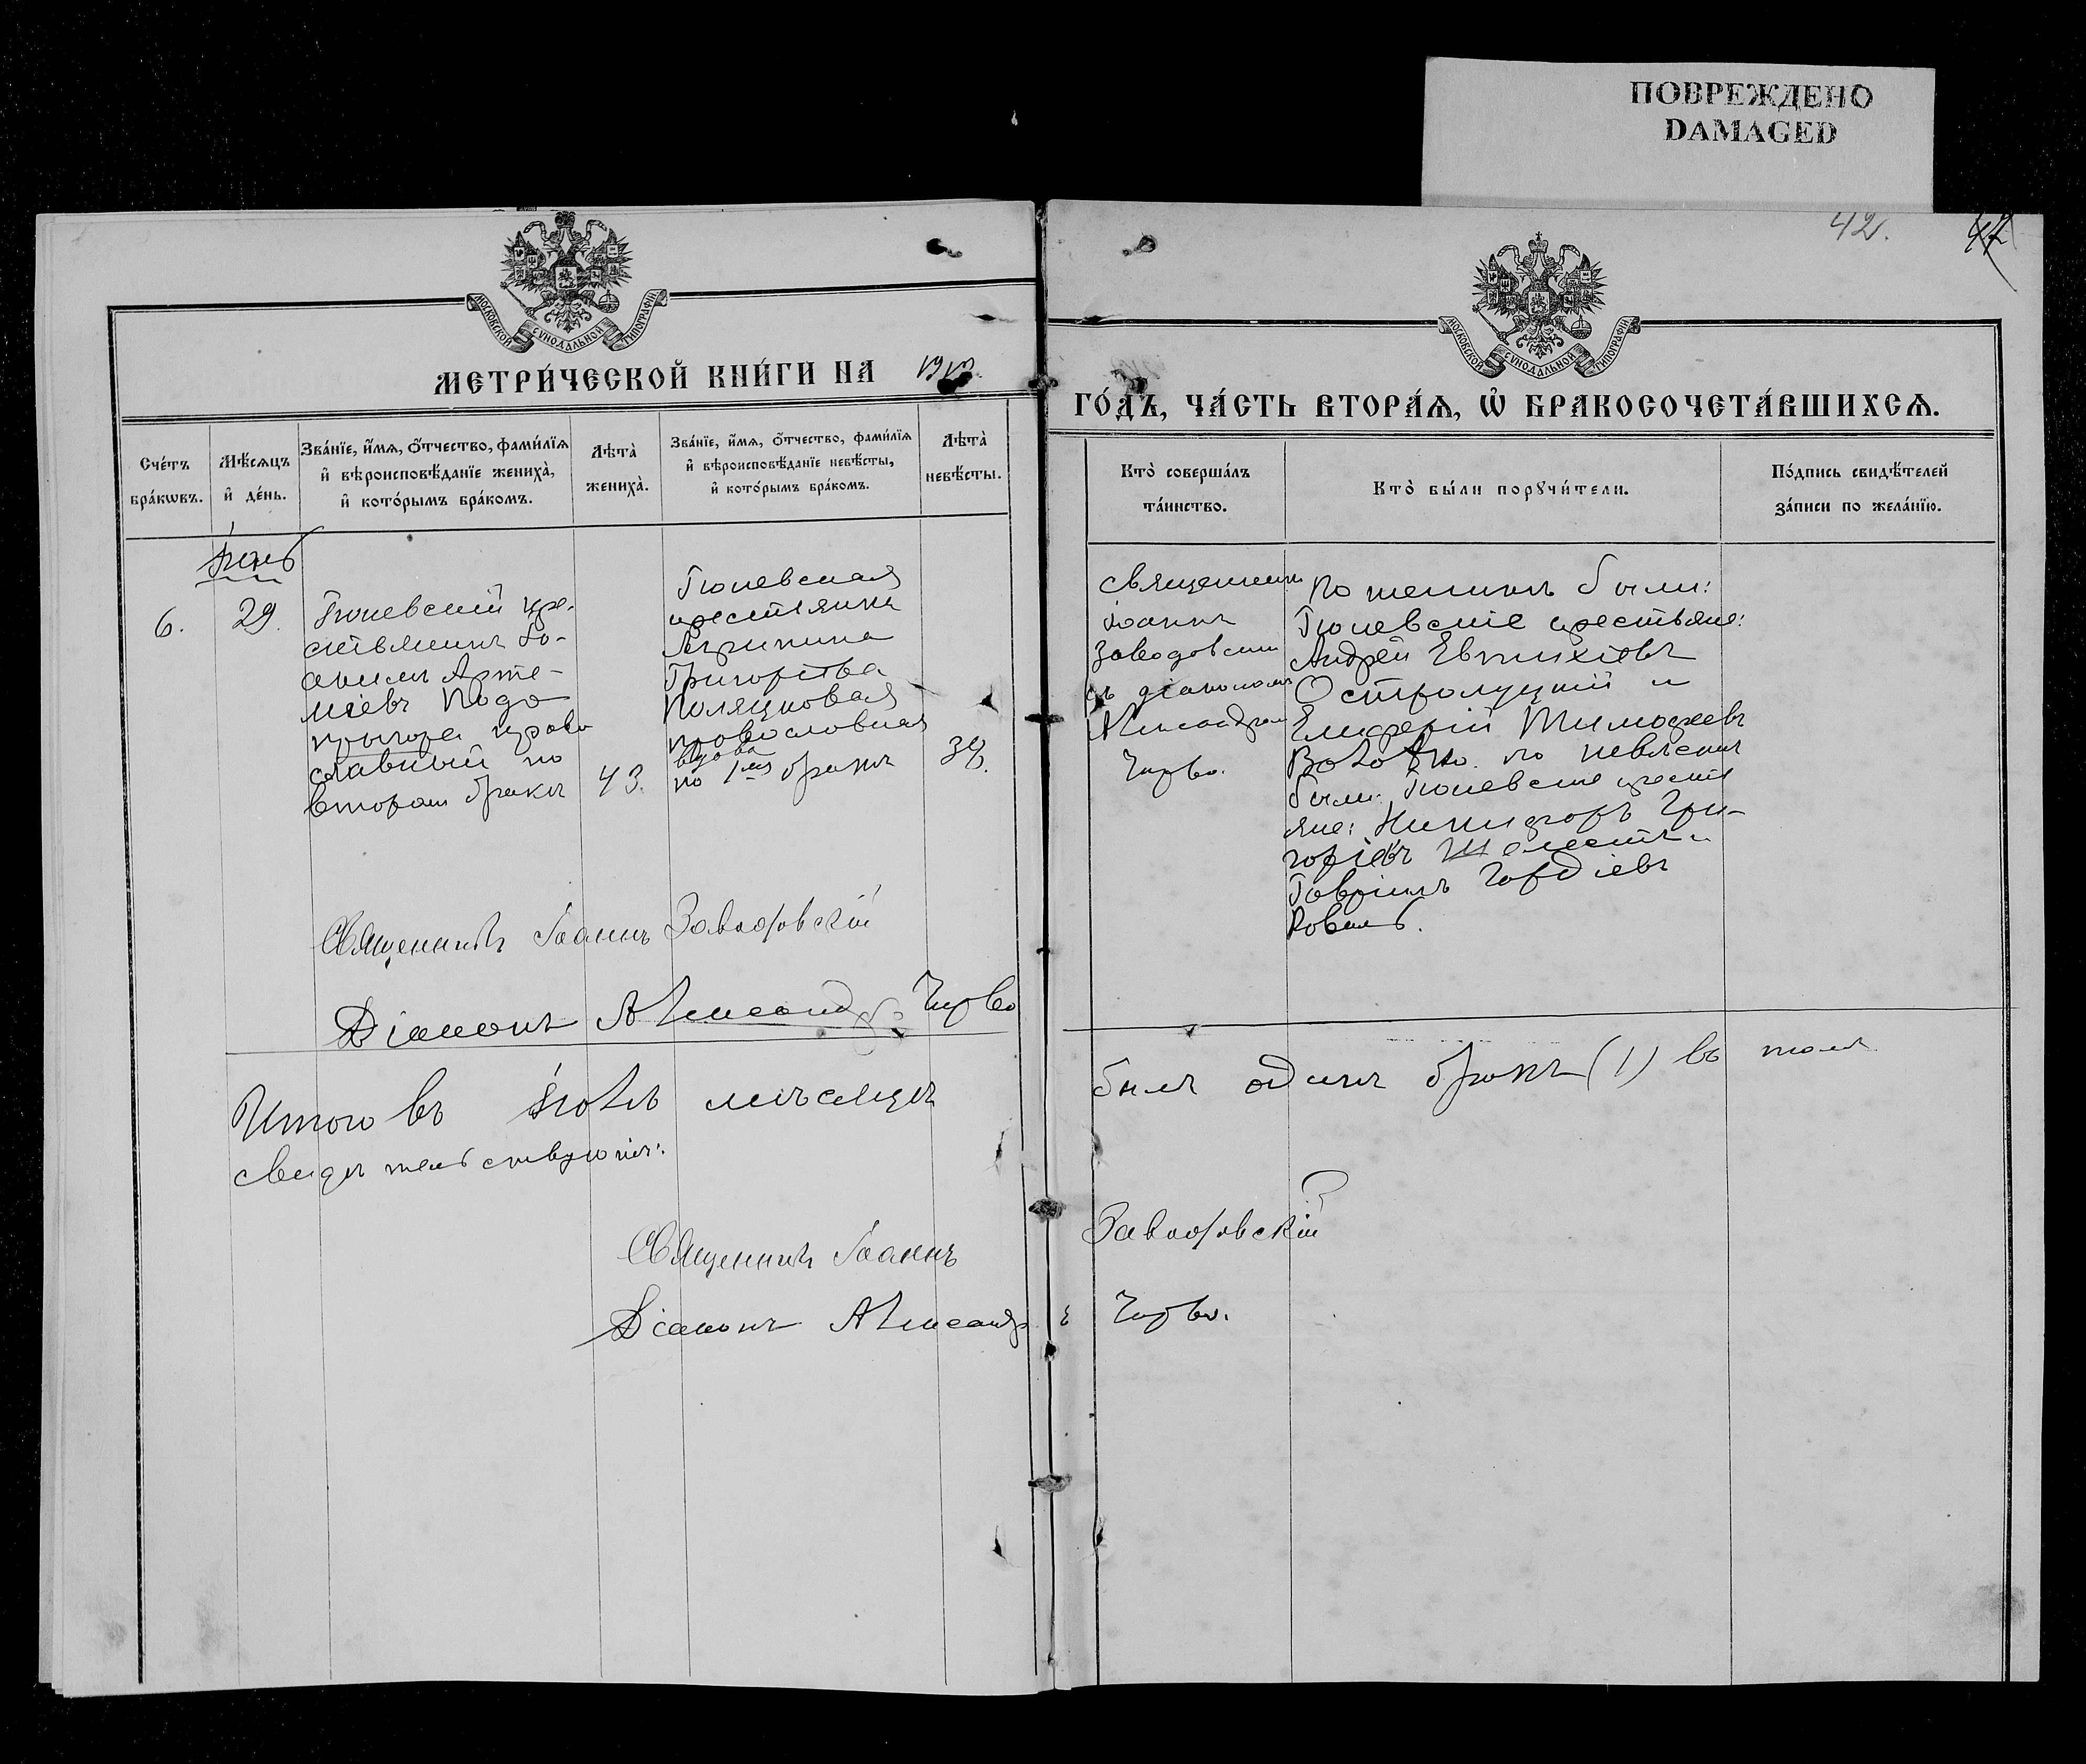 ПОВРЕЖДЕНО
DAMAGED
42.
42
МОСКОВСКОЙ СУНОДАЛЬНОЙ ТИПОГРАФІИ
МОСКОВСКОЙ СУНОДАЛЬНОЙ ТИПОГРАФІИ
МЕТРИ́ЧЕСКОЙ КНИ́ГИ НА
ГО́ДЪ, ЧА́СТЬ ВТОРА́Ѧ, Ѽ БРАКОСОЧЕТА́ВШИХСѦ.
Сче́тъ
бра́кѡвъ.
Мѣ́сѧцъ
и҆ де́нь.
Зва́нїе, и҆́мѧ, ѻ҆́тчество, фами́лїѧ
и҆ вѣроисповѣ́данїе жениха̀,
и҆ кото́рымъ бра́комъ.
Лѣта̀
жениха̀.
Зва́нїе, и҆́мѧ, ѻ҆́тчество, фами́лїѧ
и҆ вѣроисповѣ́данїе невѣ́сты,
и҆ кото́рымъ бра́комъ.
Лѣта̀
невѣ́сты.
Кто̀ соверша́лъ
та́инство.
Кто̀ бы́ли порꙋчи́тели.
По́дпись свидѣ́телей
за́писи по жела́нїю.
6.
29.
крe-
стьянинъ Іо-
акимъ Арте-
міевъ Подо
пригора право
славный по
второму браку
43.
крестьянка
Агрипина
Григоріева
Поляковая
православная
вдова
по 1мъ бракѣ
39.
Священникъ
Іоаннъ
Заводовскій
съ діакономъ
Александромъ
По женихѣ были:
крестьяне:
Андрей Евтихіевъ
Остролуцкій и
Елиферій Тимофеевъ
по невѣстѣ
были: крестья
яне: Никифоръ Гри-
горіевъ Шелестъ и
Гавріилъ Гордіевъ
Коваль.
Священникъ Іоаннъ Заводовскій
Діаконъ Александръ
Итого въ мѣсяцѣ
былъ одинъ бракъ (1) въ томъ
свидѣтельствуютъ:
Священникъ Іоаннъ
Заводовскій
Діаконъ Александр